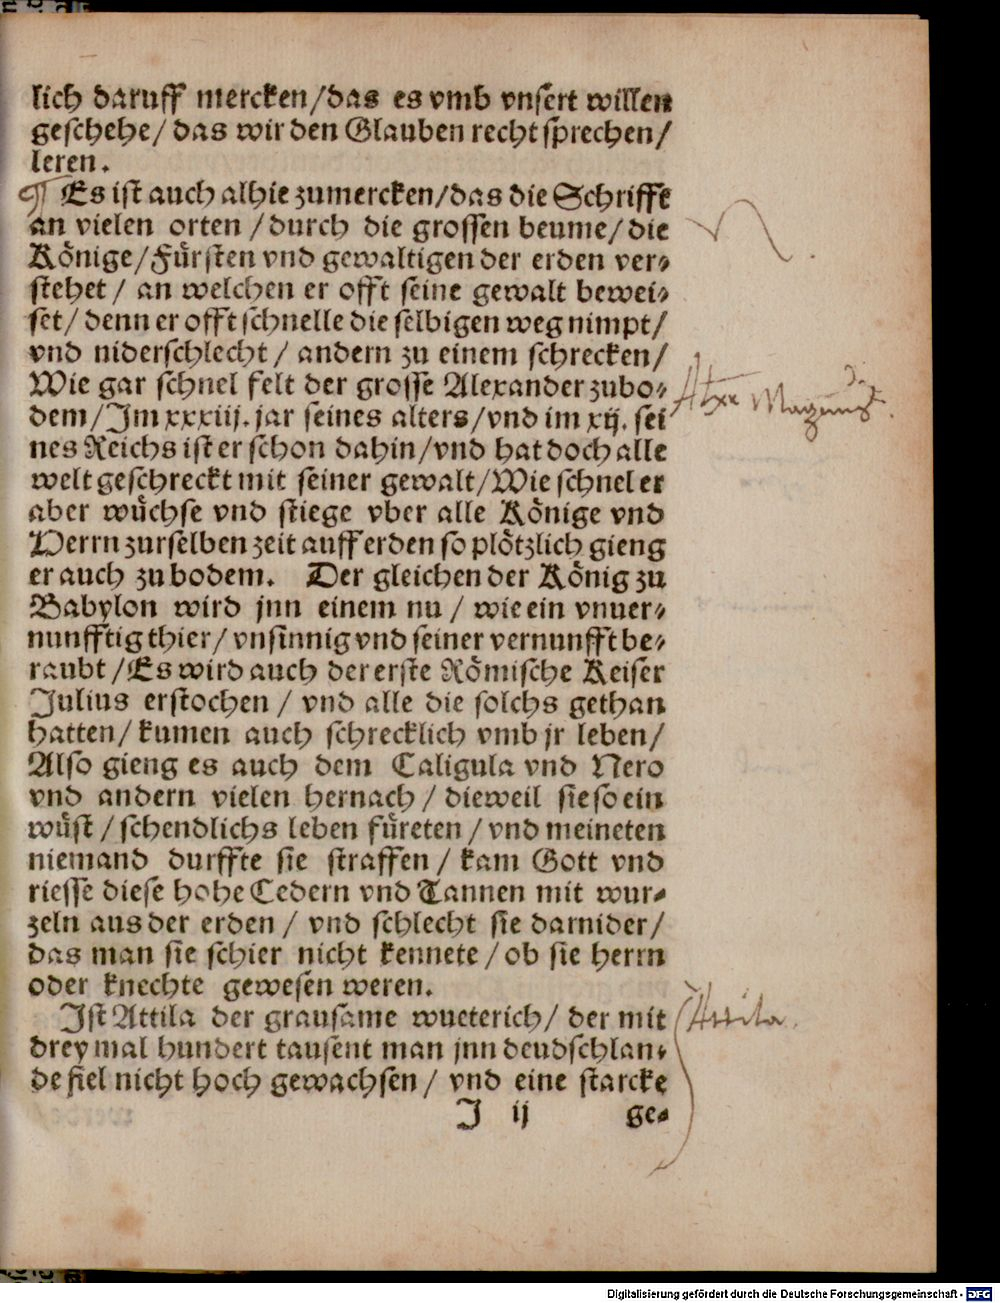 lich daruff mercken/das es vmb vnsert willen
geschehe/ das wir den Glauben recht sprechen/
leren.
¶ Es ist auch alhie zumercken/das die Schrifft
an vielen orten /durch die grossen beume/ die
Könige/Fürsten vnd gewaltigen der erden ver-
stehet / an welchen er offt seine gewalt bewei-
set/ denn er offt schnelle die selbigen weg nimpt/
vnd niderschlecht / andern zu einem schrecken/
Wie gar schnel felt der grosse Alexander zubo-
dem/Im xxxiij. jar seines alters/vnd im xij. sei
nes Reichs ist er schon dahin/vnd hat doch alle
welt geschreckt mit seiner gewalt/Wie schnel er
aber wüchse vnd stiege vber alle Könige vnd
Herrn zurselben zeit auff erden so plötzlich gieng
er auch zu bodem. Der gleichen der König zu
Babylon wird jnn einem nu / wie ein vnuer-
nunfftig thier/ vnsinnig vnd seiner vernunfft be-
raubt /Es wird auch der erste Römische Keiser
Julius erstochen / vnd alle die solchs gethan
hatten/ kumen auch schrecklich vmb jr leben/
Also gieng es auch dem Caligula vnd Nero
vnd andern vielen hernach / dieweil sie so ein
wüst / schendlichs leben füreten / vnd meineten
niemand durffte sie straffen / kam Gott vnd
riesse diese hohe Cedern vnd Tannen mit wur-
zeln aus der erden / vnd schlecht sie darnider/
das man sie schier nicht kennete / ob sie herrn
oder knechte gewesen weren.
Ist Attila der grausame wueterich/ der mit
drey mal hundert tausent man jnn deudschlan-
de fiel nicht hoch gewachsen / vnd eine starcke
J ij ge-
Attila.
Digitalisierung gefördert durch die Deutsche Forschungsgemeinschaft - DFG